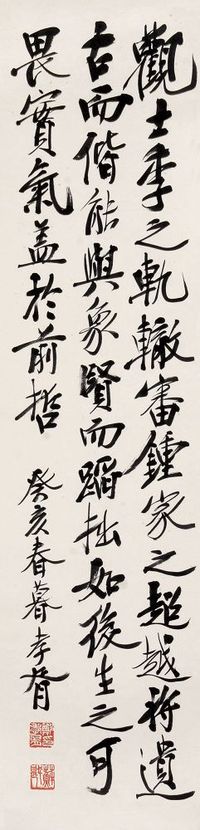 觀士季之軌轍審鍾家之超越將遺
古而偕能與象賢而蹈拙如後生之可
畏實氣蓋於前哲
癸亥春暮孝胥